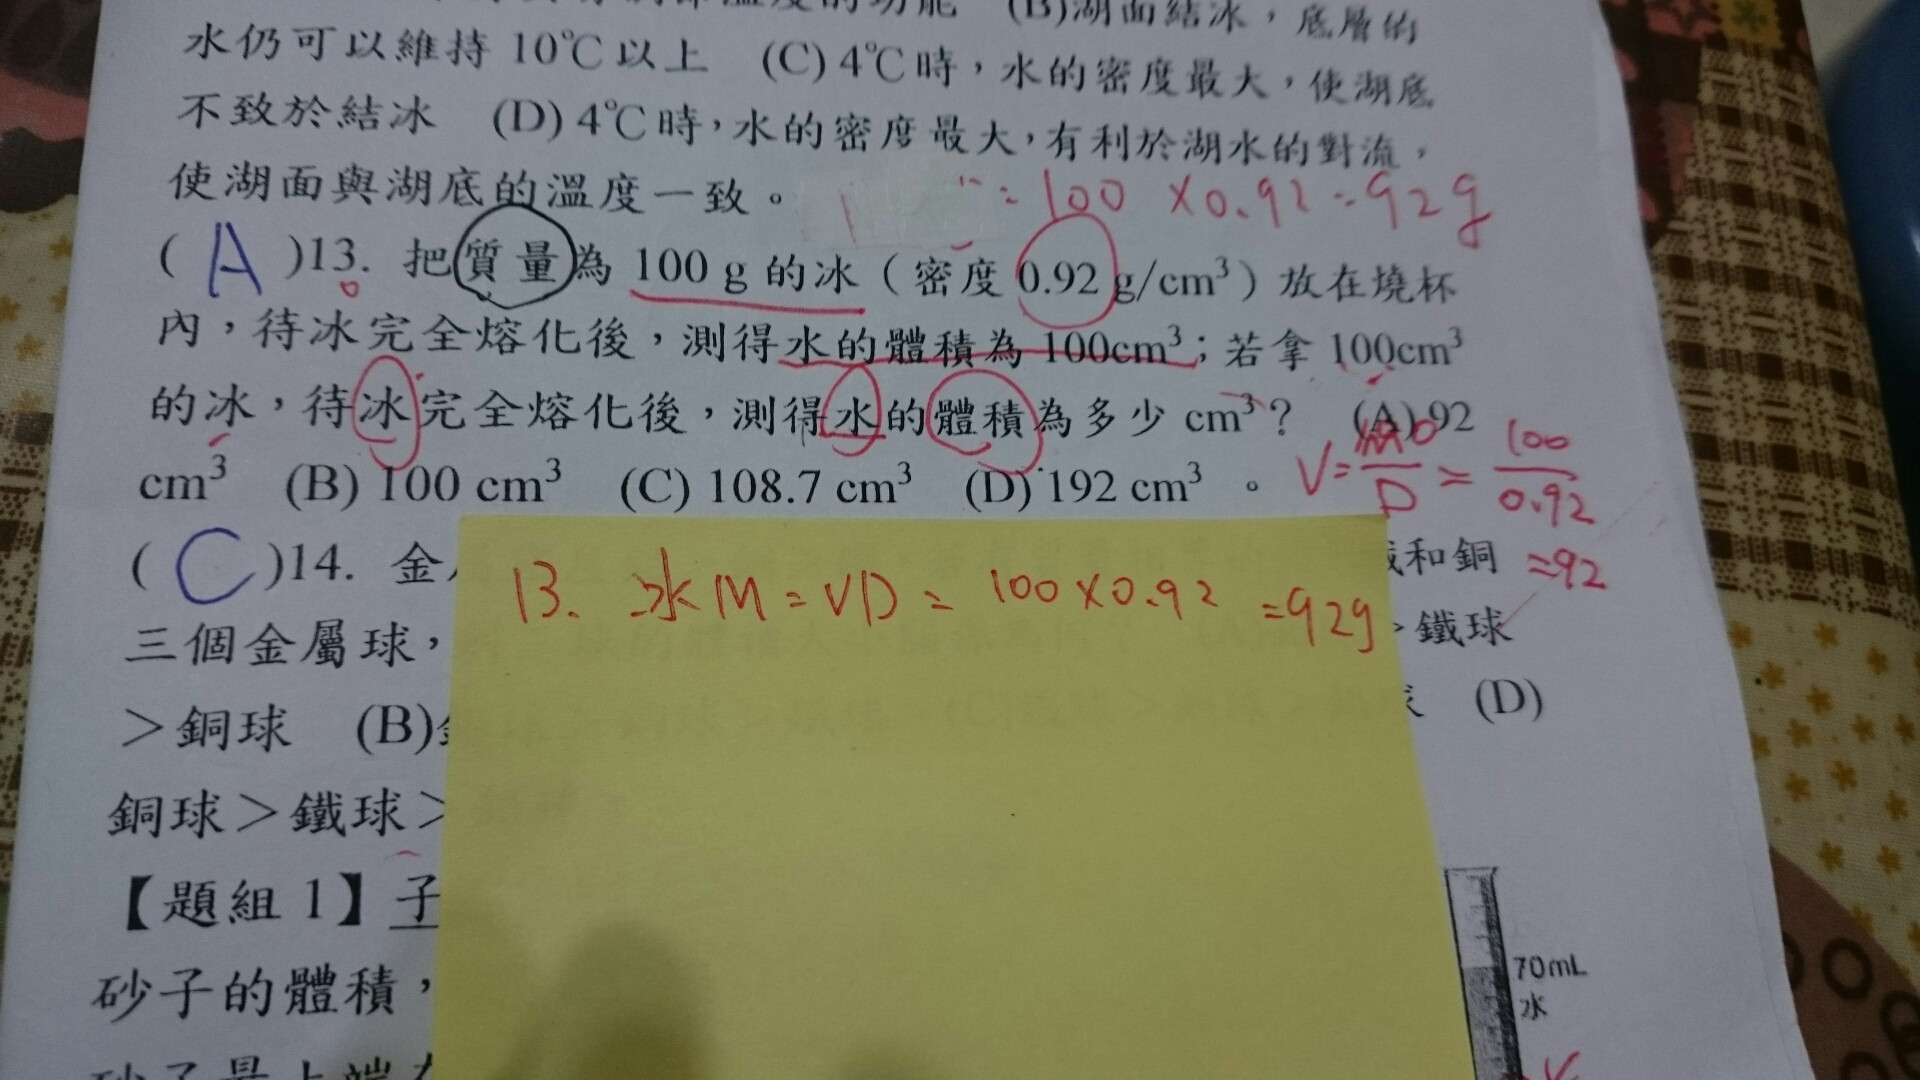 (B)湖面結冰，底層的
水仍可以維持 10℃以上 (C) 4℃時，水的密度最大，使湖底
不致於結冰 (D) 4℃時，水的密度最大，有利於湖水的對流，
使湖面與湖底的溫度一致。
= 100 ×0.92=92g
( A )13. 把質量為 100 g 的冰（密度 0.92 g/cm³）放在燒杯
內，待冰完全熔化後，測得水的體積為 100cm³；若拿 100cm³
的冰，待冰完全熔化後，測得水的體積為多少 cm³？ (A) 92
cm³ (B) 100 cm³ (C) 108.7 cm³ (D) 192 cm³ 。
V= D = 100 0.92
=92
( C )14. 金 和銅
13. 冰 M = VD = 100×0.92 =92g
三個金屬球， >鐵球
>銅球 (B) (D)
銅球>鐵球>
【題組 1】子
砂子的體積，
70mL
水